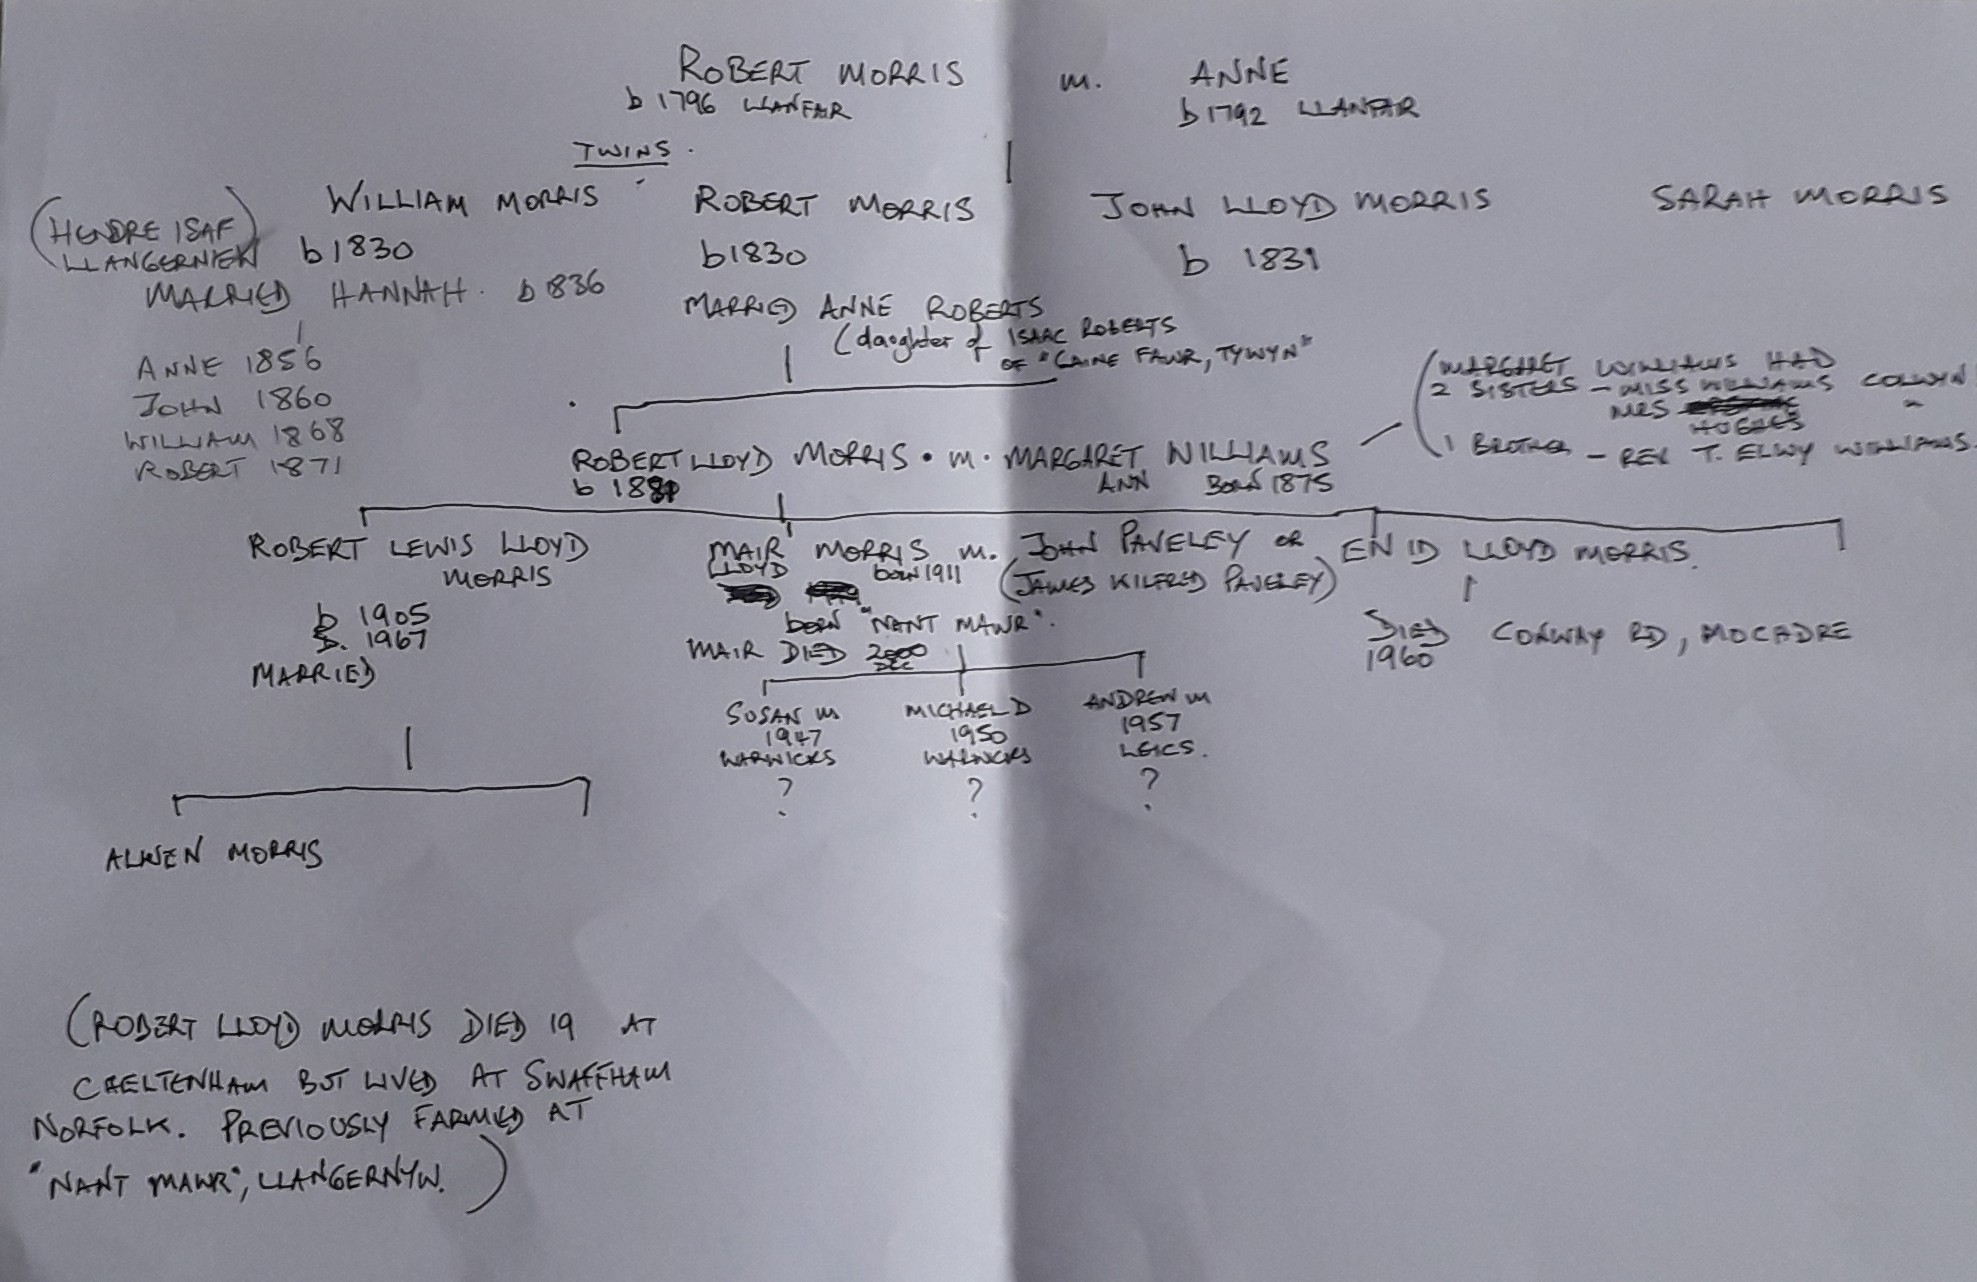 ROBERT MORRIS m. ANNE
b 1796 LLANFAIR b 1792 LLANFAIR
TWINS.
(HENDRE ISAF) WILLIAM MORRIS ROBERT MORRIS JOHN LLOYD MORRIS SARAH MORRIS
LLANGERNIEW b 1830 b 1830 b 1831
MARRIED HANNAH. b 1836
MARRIED ANNE ROBERTS
(daughter of ISAAC ROBERTS
OF "CAINE FAWR, TYWYN"
ANNE 1856
JOHN 1860
WILLIAM 1868
ROBERT 1871
(MARGARET WILLIAMS HAD
2 SISTERS - MISS WILLIAMS COLWYN
MRS HUGHES "
1 BROTHER - REV T. ELWY WILLIAMS.
ROBERT LLOYD MORRIS • m • MARGARET WILLIAMS
b 188 ANN BORN 1875
ROBERT LEWIS LLOYD
MORRIS
b 1905
D. 1967
MARRIED
MAIR MORRIS m. JOHN PAVELEY OR
LLOYD born 1911 (JAMES KILFRED PAVELEY)
born "NANT MAWR".
MAIR DIED 2000
DEC
ENID LLOYD MORRIS.
DIED CONWAY RD, MOCADRE
1960
SUSAN M MICHAEL D ANDREW M
1947 1950 1957
WARWICKS WARWICKS LEICS.
? ? ?
ALWEN MORRIS
(ROBERT LLOYD MORRIS DIED 19 AT
CHELTENHAM BUT LIVED AT SWAFFHAM
NORFOLK. PREVIOUSLY FARMED AT
"NANT MAWR", LLANGERNYW.)